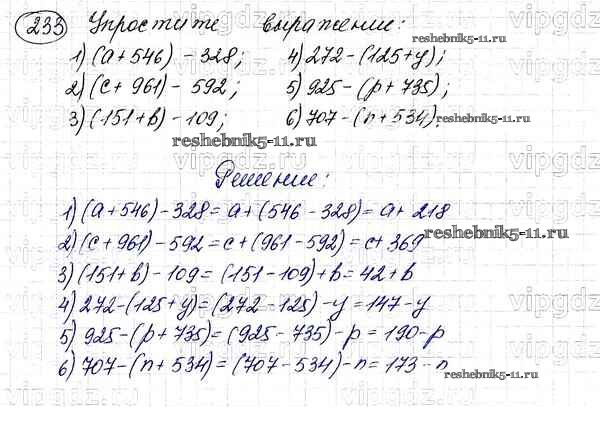 233 Упростите выражение:
reshebnik5-11.ru
1) (a + 546) - 328; 4) 272 - (125 + y);
2) (c + 961) - 592; 5) 925 - (p + 735);
3) (151 + b) - 109; 6) 707 - (n + 534).
reshebnik5-11.ru
Решение:
1) (a + 546) - 328 = a + (546 - 328) = a + 218
reshebnik5-11.ru
2) (c + 961) - 592 = c + (961 - 592) = c + 369
3) (151 + b) - 109 = (151 - 109) + b = 42 + b
4) 272 - (125 + y) = (272 - 125) - y = 147 - y
5) 925 - (p + 735) = (925 - 735) - p = 190 - p
6) 707 - (n + 534) = (707 - 534) - n = 173 - n
reshebnik5-11.ru
vipgdz.ru